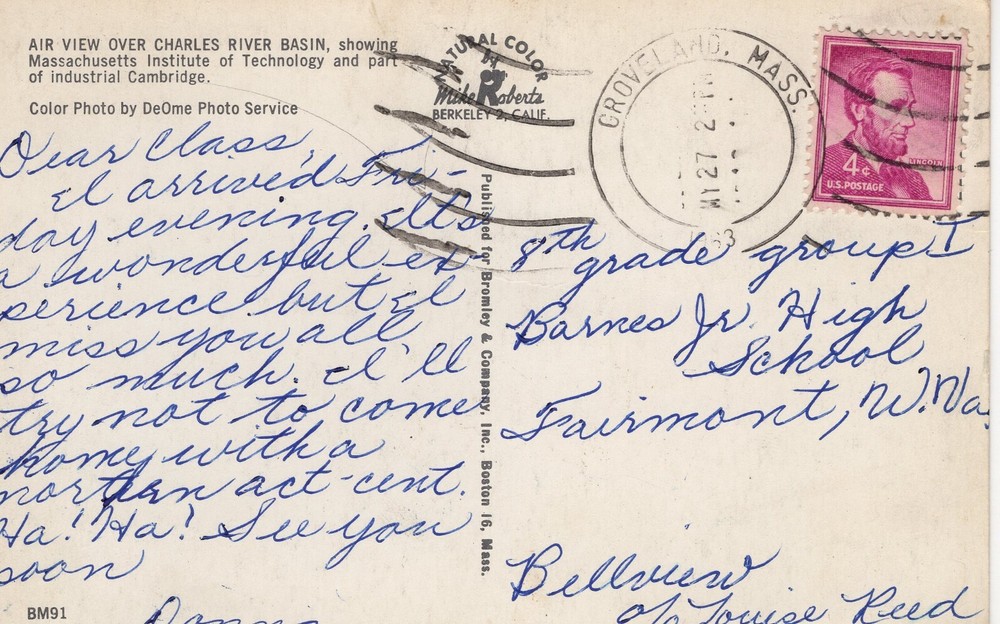 AIR VIEW OVER CHARLES RIVER BASIN, showing
Massachusetts Institute of Technology and part
of industrial Cambridge.
Color Photo by DeOme Photo Service
NATURAL COLOR
BY
Mike Roberts
BERKELEY 2, CALIF.
GROVELAND, MASS.
MY27
4¢
LINCOLN
U.S. POSTAGE
Dear Class,
I arrived Fri-
day evening. It's
a wonderful ex-
perience but I
miss you all
so much. I'll
try not to come
home with a
northern act-cent.
Ha! Ha! See you
soon
Donna
BM91
Published for Bromley & Company, Inc., Boston 16, Mass.
8th grade group I
Barnes Jr. High
School
Fairmont, W. Va.
Bellview
c/o Louise Reed